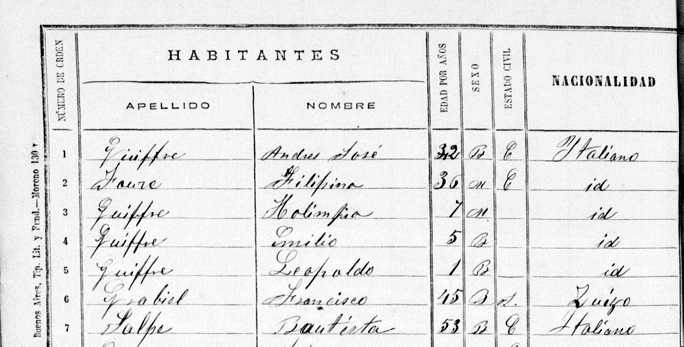 HABITANTES
NÚMERO DE ORDEN APELLIDO NOMBRE EDAD POR AÑOS SEXO ESTADO CIVIL NACIONALIDAD
1 Guiffre Andres José 32 B C Italiano
2 Faure Filipina 36 M C id
3 Guiffre Holimpia 7 M id
4 Guiffre Emilio 5 B id
5 Guiffre Leopoldo 1 B id
6 Grabiel Francisco 45 B Zuizo
7 Salpe Bautista 53 B C Italiano
Buenos Aires, Tip. Lit. y Fend.—Moreno 130